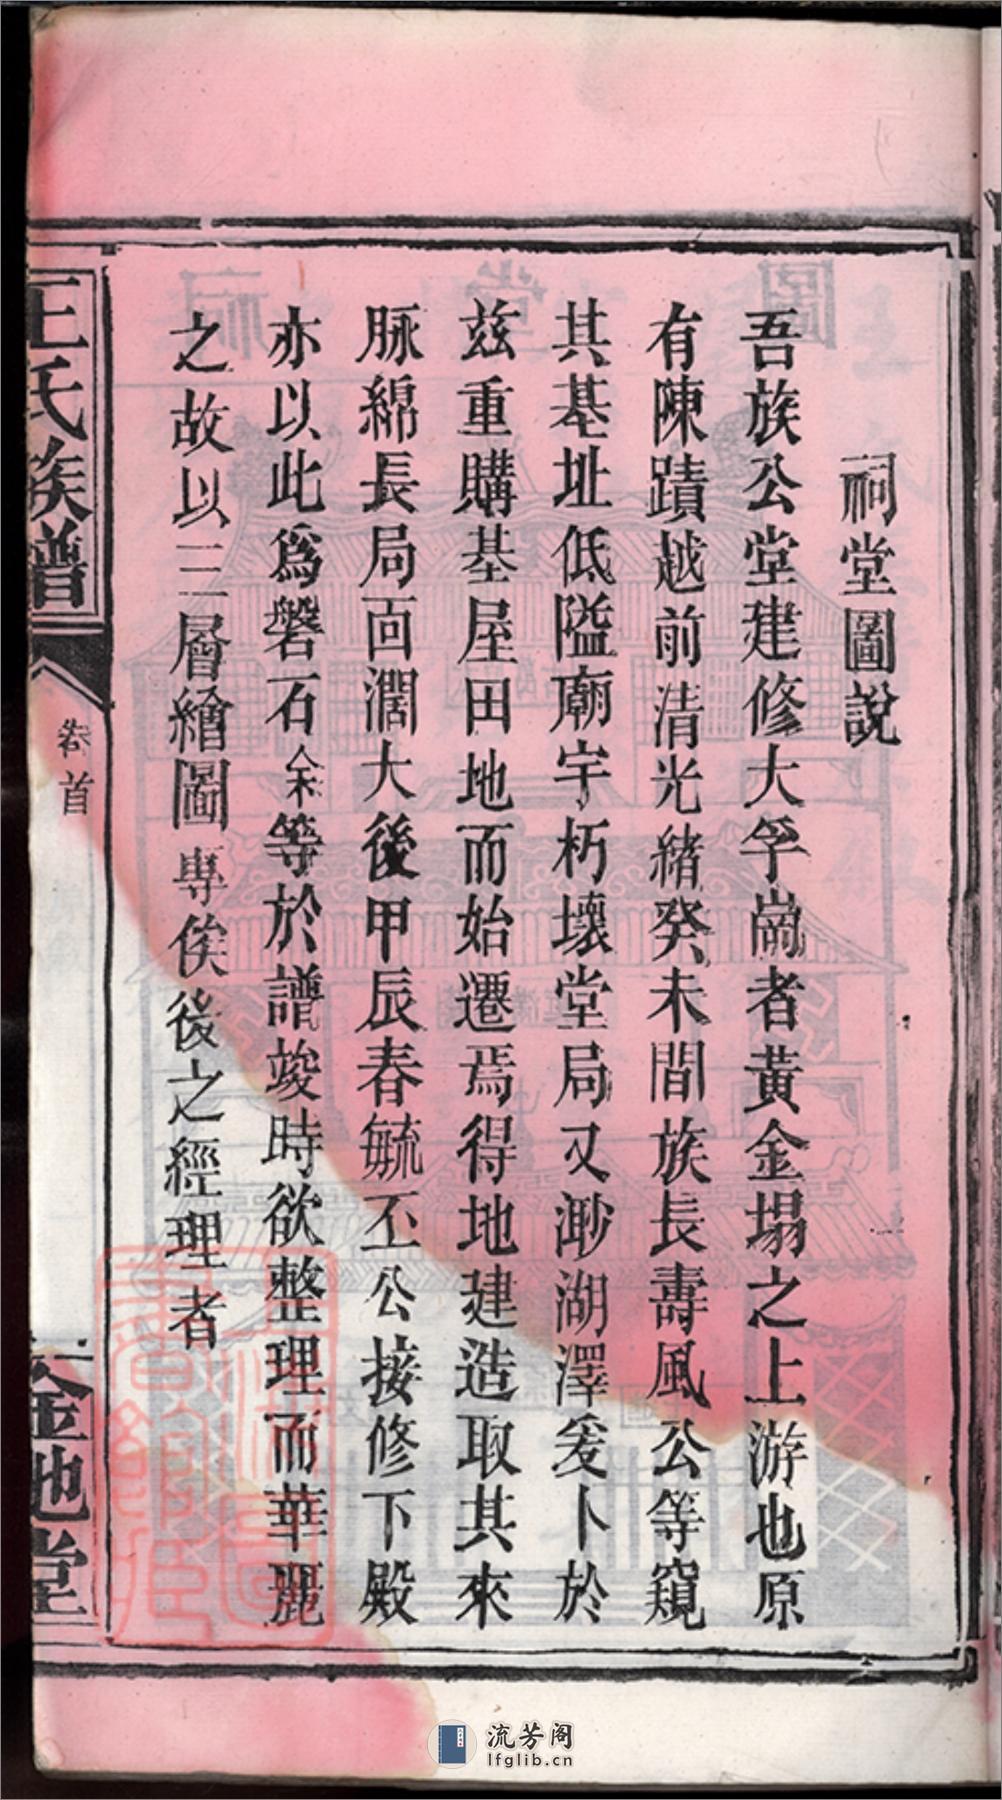 祠堂圖說
吾族公堂建修大孚崗者黃金塌之上游也原
有陳蹟越前清光緒癸未間族長壽風公等窺
其基址低隘廟宇朽壞堂局又渺湖澤爰卜於
茲重購基屋田地而始遷焉得地建造取其來
脉綿長局面濶大後甲辰春毓丕公接修下殿
亦以此爲磐石余等於譜竣時欲整理而華麗
之故以三層繪圖專俟後之經理者
王氏族譜
卷首
金地堂
流芳阁
lfglib.cn